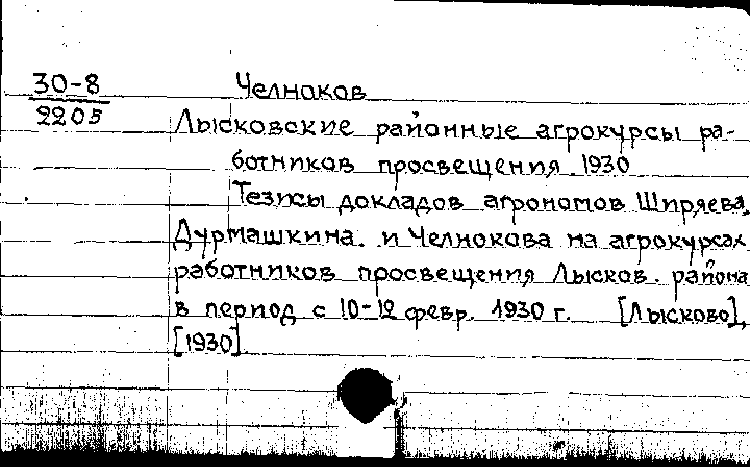 30-8 Челноков
2205
Лысковские районные агрокурсы ра-
ботников просвещения. 1930
Тезисы докладов агрономов Ширяева,
Дурмашкина и Челнокова на агрокурсах
работников просвещения Лысков. района
в период с 10-12 февр. 1930 г. [Лысково],
[1930]